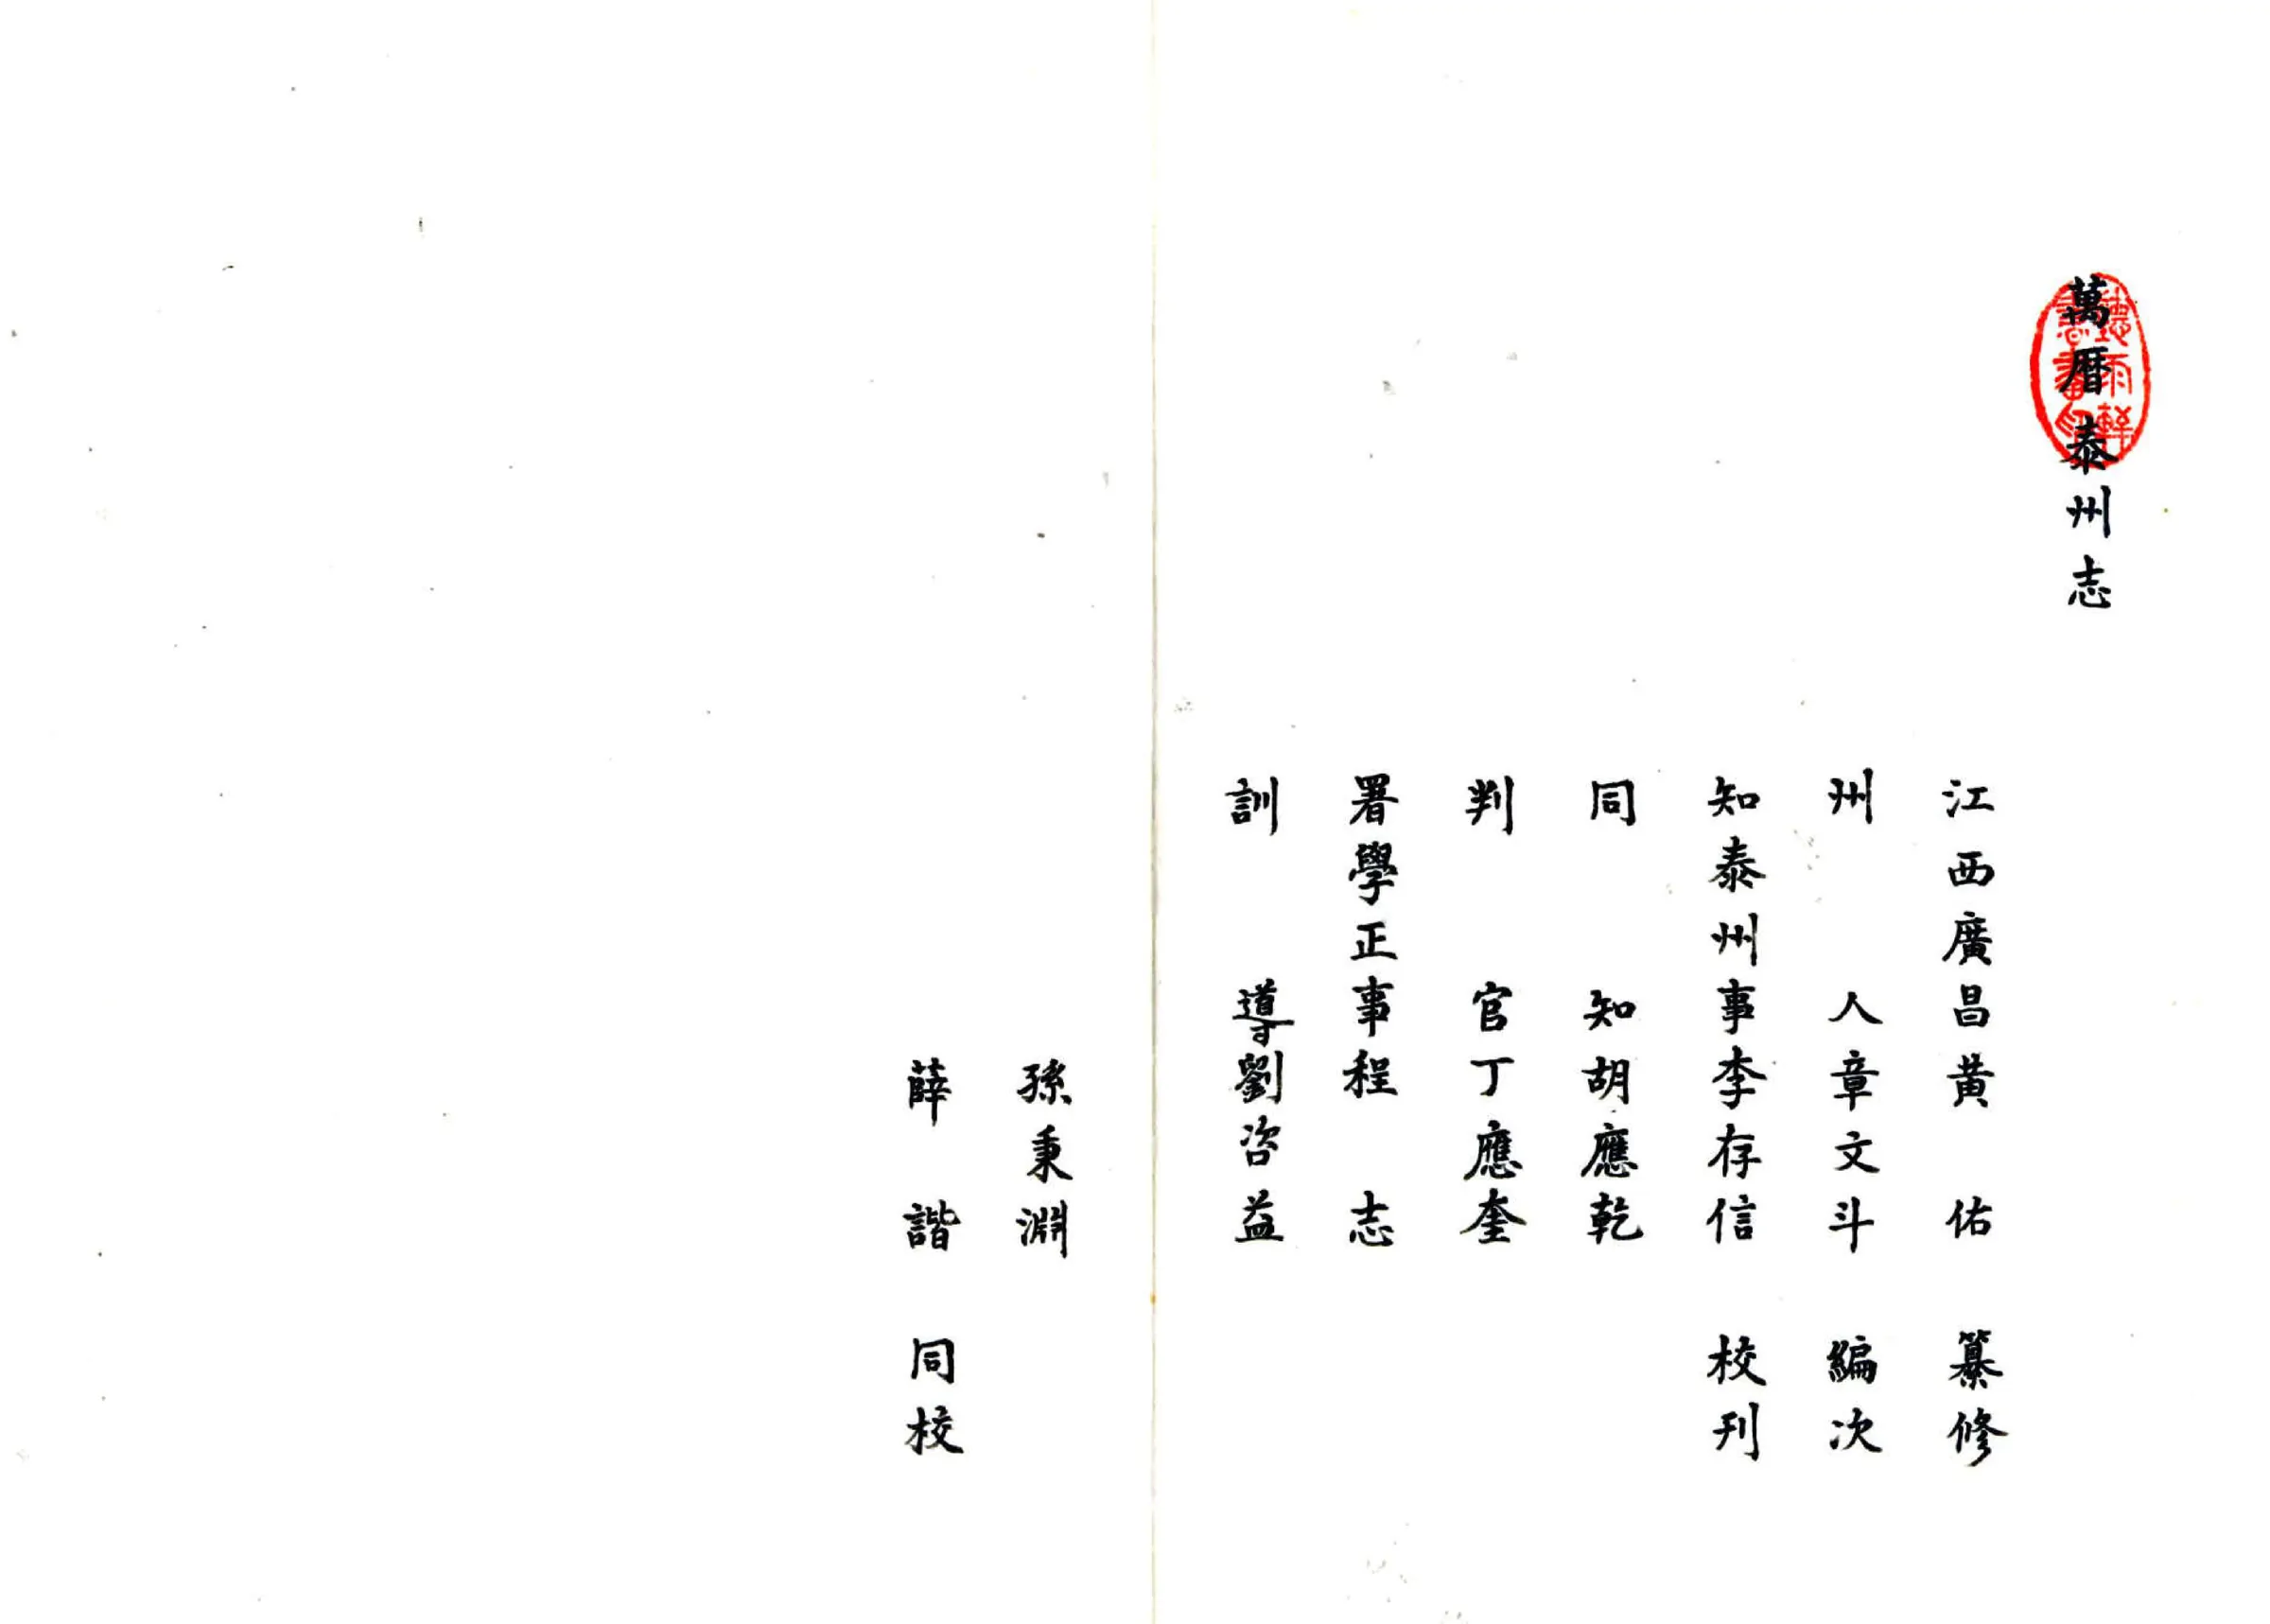 萬曆泰州志
江西廣昌黃佑纂修
州人章文斗編次
知泰州事李存信校刊
同知胡應乾
判官丁應奎
署學正事程志
訓導劉咨益
孫秉淵
薛諧同校